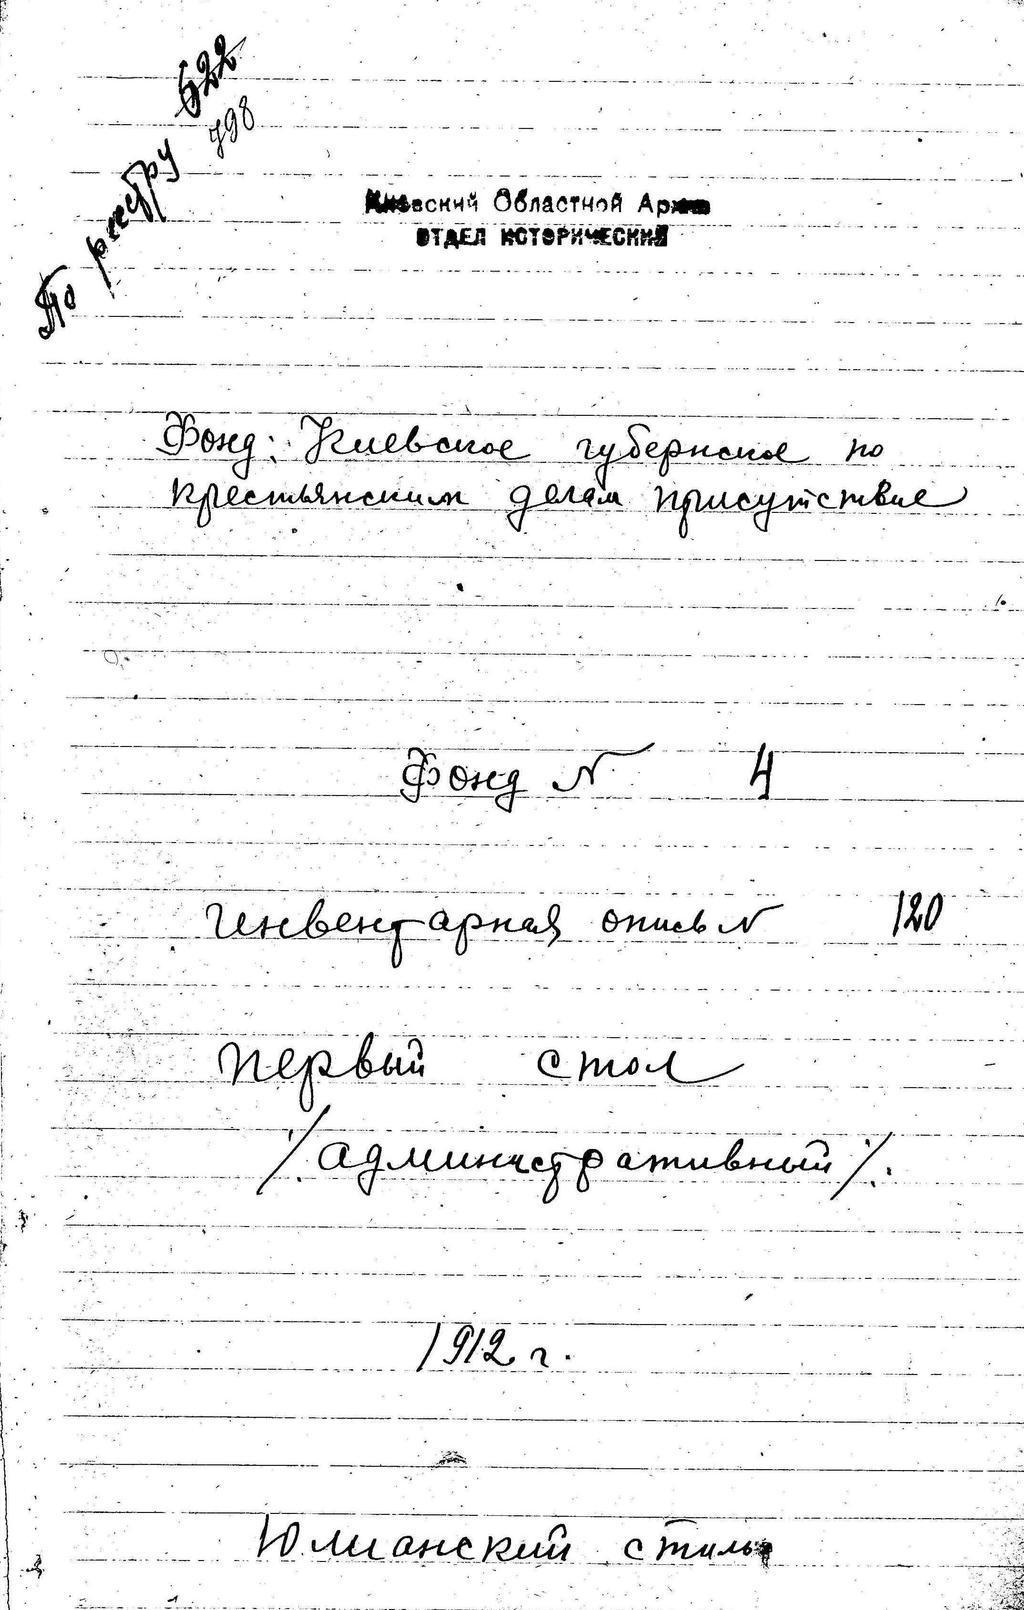 По реестру 622
798
Киевский Областной Архив
ОТДЕЛ ИСТОРИЧЕСКИЙ
Фонд: Киевское губернское по
крестьянским делам присутствие
Фонд N 4
Инвентарная опись N 120
Первый стол
/административный/.
1912 г.
Юлианский стиль